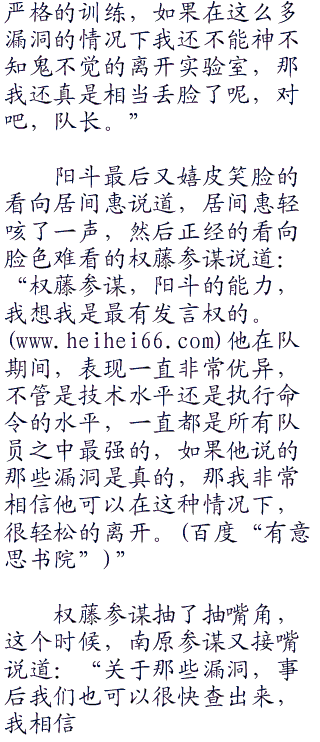 严格的训练，如果在这么多
漏洞的情况下我还不能神不
知鬼不觉的离开实验室，那
我还真是相当丢脸了呢，对
吧，队长。”
阳斗最后又嬉皮笑脸的
看向居间惠说道，居间惠轻
咳了一声，然后正经的看向
脸色难看的权藤参谋说道：
“权藤参谋，阳斗的能力，
我想我是最有发言权的。
(www.heihei66.com)他在队
期间，表现一直非常优异，
不管是技术水平还是执行命
令的水平，一直都是所有队
员之中最强的，如果他说的
那些漏洞是真的，那我非常
相信他可以在这种情况下，
很轻松的离开。(百度“有意
思书院”)”
权藤参谋抽了抽嘴角，
这个时候，南原参谋又接嘴
说道：“关于那些漏洞，事
后我们也可以很快查出来，
我相信